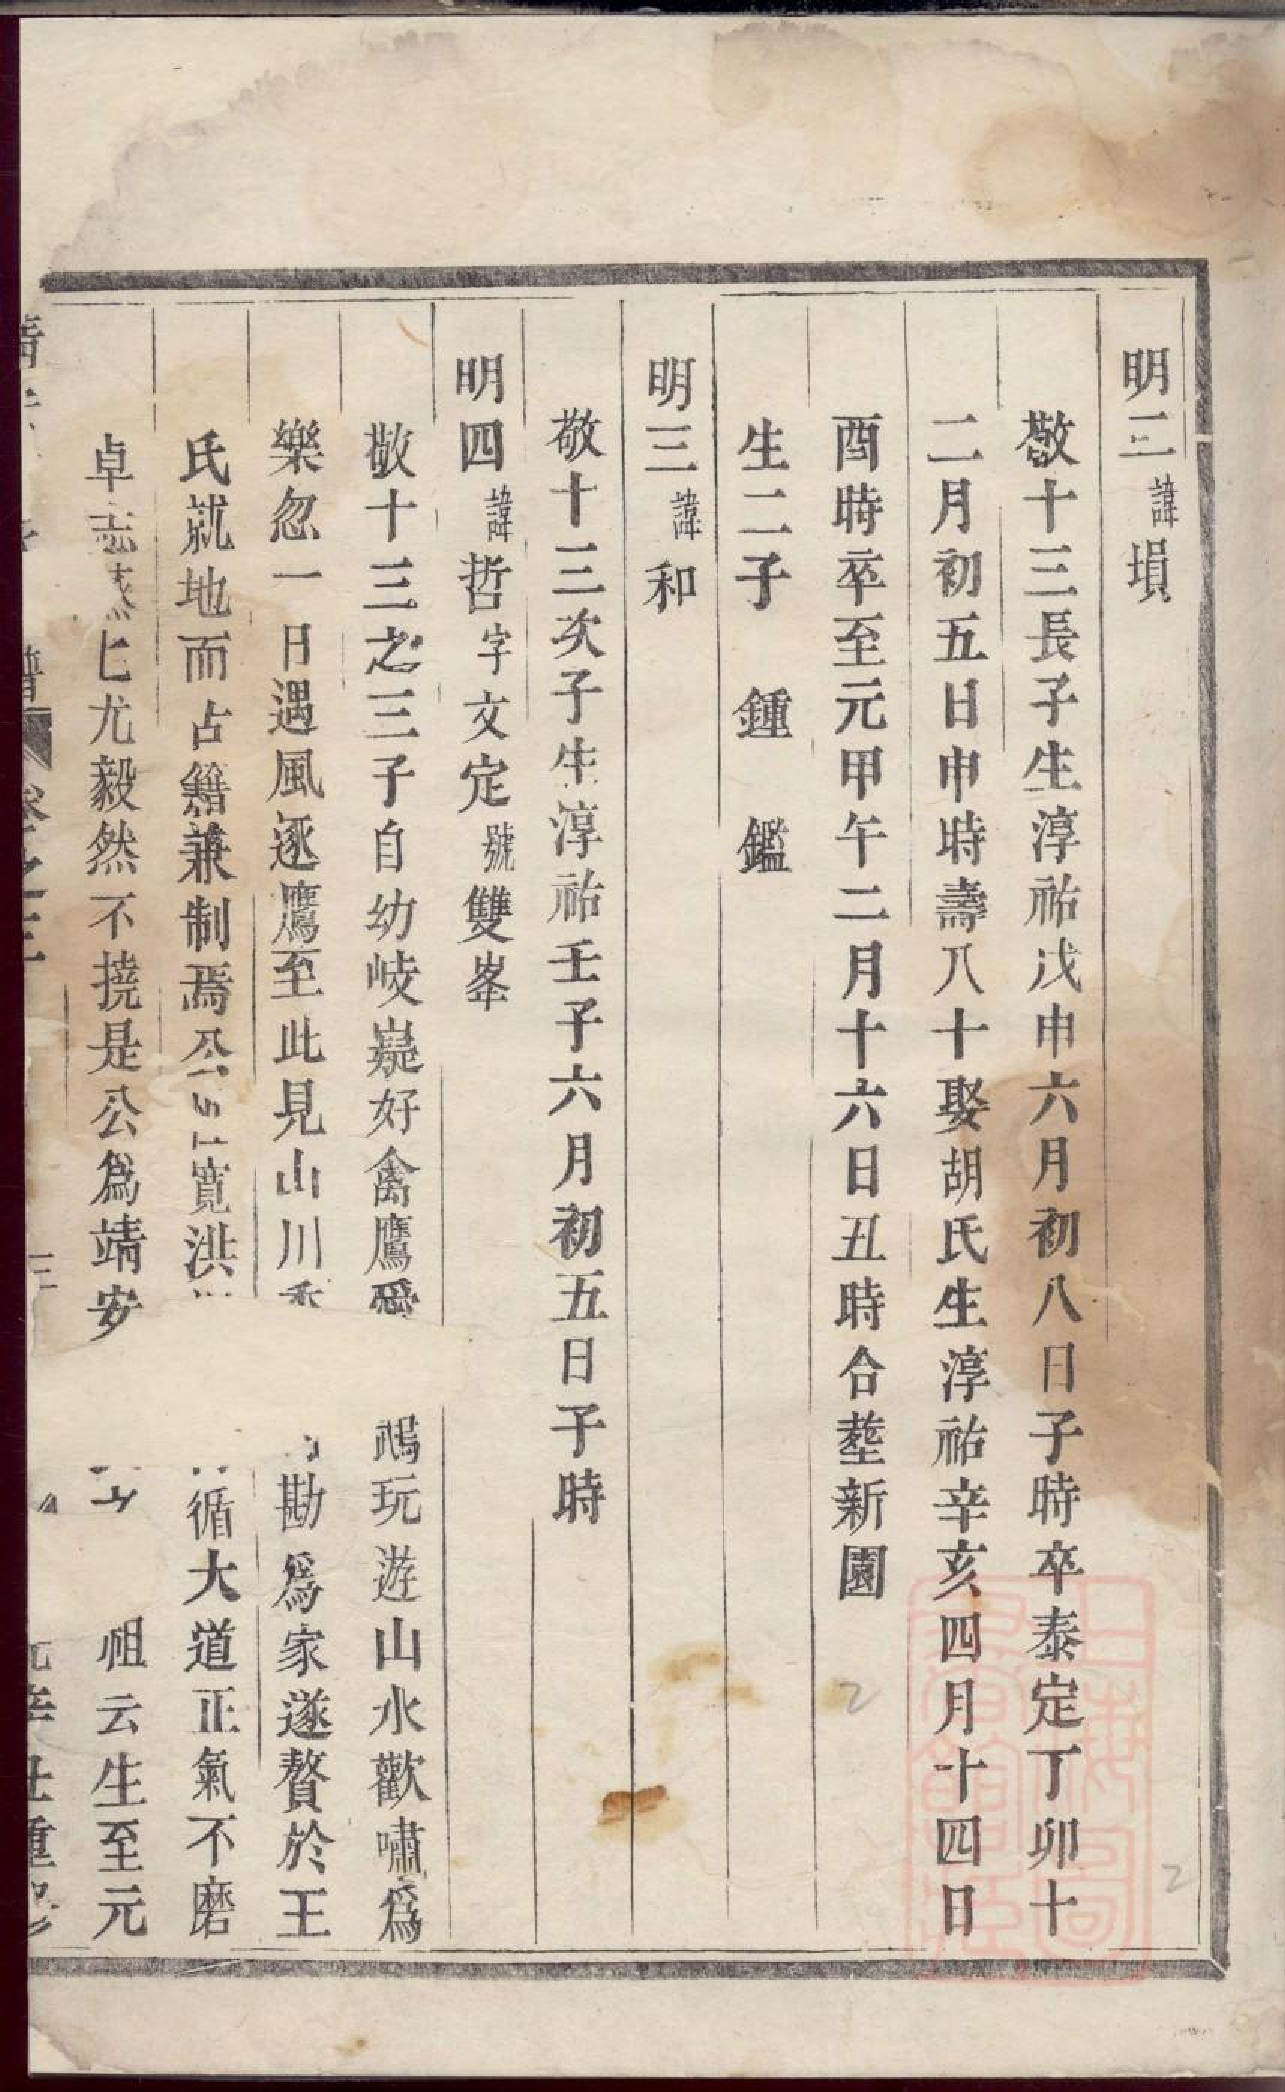 明二諱塤
敬十三長子生淳祐戊申六月初八日子時卒泰定丁卯十
二月初五日申時壽八十娶胡氏生淳祐辛亥四月十四日
酉時卒至元甲午二月十六日丑時合塟新園
生二子　鍾　鑑
明三諱和
敬十三次子生淳祐壬子六月初五日子時
明四諱哲字文定號雙峯
敬十三之三子自幼岐嶷好禽鷹愛玩遊山水歡嘯爲
樂忽一日遇風逐鷹至此見山川勘爲家遂贅於王
氏就地而占籍兼制焉公寬洪循大道正氣不磨
卓志尤毅然不撓是公爲靖安祖云生至元
譜卷之三　三　辛丑重修